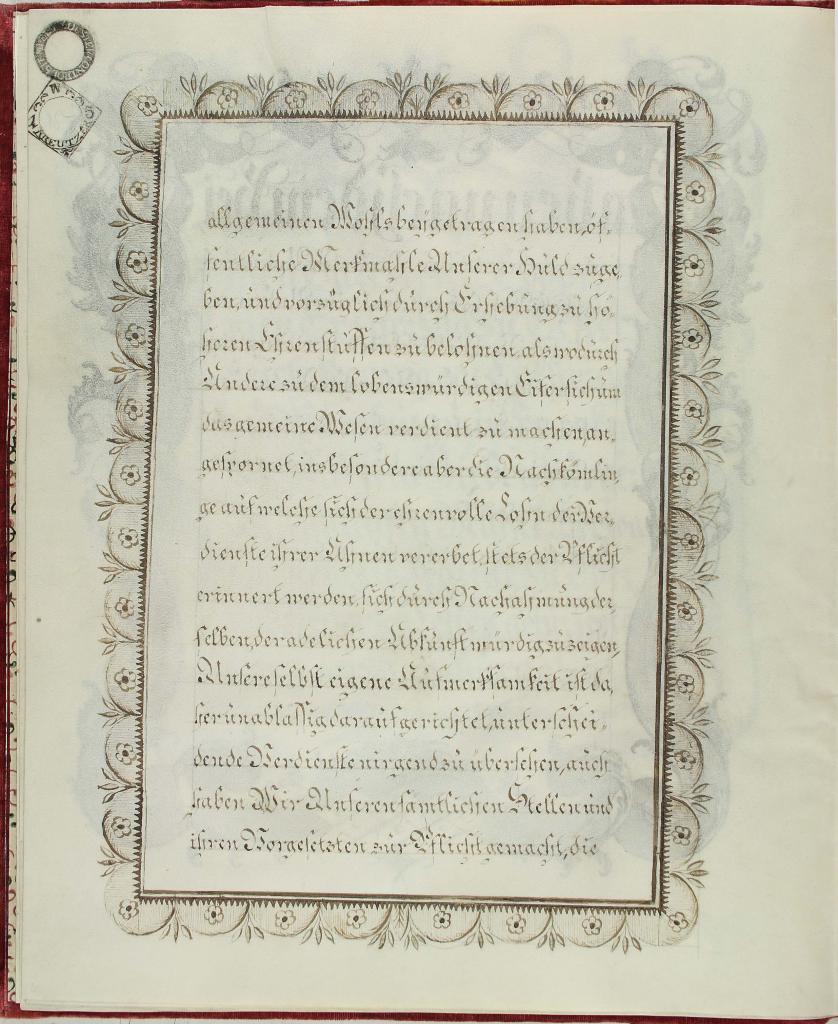 allgemeinen Wohls beÿgetragen haben, öf-
fentliche Merkmahle Unserer Huld zu ge-
ben, und vorzüglich durch Erhebung zu hö-
heren Ehrenstuffen zu belohnen, als wodurch
Andere zu dem lobenswürdigen Eifer sich um
das gemeine Wesen verdient zu machen, an-
gespornet, insbesondere aber die Nachkömlin-
ge auf welche sich der ehrenvolle Lohn der Ver-
dienste ihrer Ahnen vererbet, stets der Pflicht
erinnert werden, sich durch Nachahmung der-
selben, der adelichen Abkunft würdig zu zeigen,
Unsere selbst eigene Aufmerksamkeit ist da-
her unablässig darauf gerichtet, unterschei-
dende Verdienste nirgend zu übersehen, auch
haben Wir Unseren samtlichen Stellen und
ihren Vorgesetzten zur Pflicht gemacht, die
KREUTZER